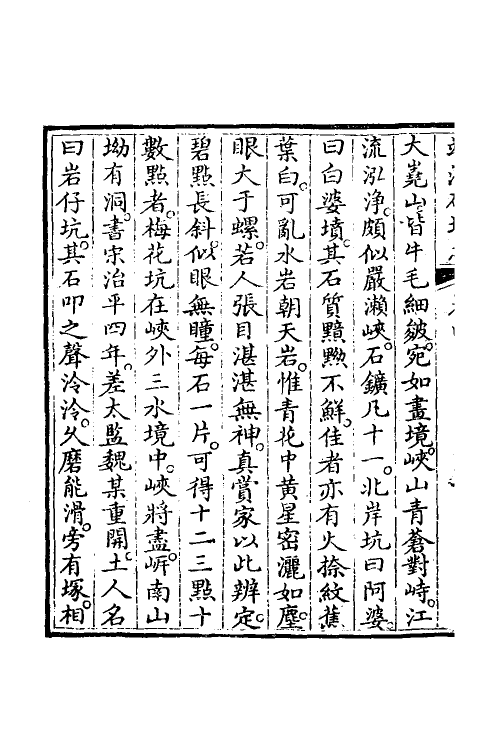 大嶤山皆牛毛細皴。宛如畫境。峽山青蒼對峙。江
流泓淨。頗似嚴瀨峽。石鑛凡十一。北岸坑曰阿婆。
曰白婆墳。其石質黯黝不鮮。佳者亦有火捺紋蕉
葉白。可亂水岩朝天岩。惟青花中黄星密灑如塵。
眼大于螺。若人張目湛湛無神。真賞家以此辨定。
碧點長斜。似眼無瞳。每石一片。可得十二三點十
數點者。梅花坑在峽外三水境中。峽將盡㟁南山
坳有洞。書宋治平四年。差太監魏某重開。土人名
曰岩仔坑。其石叩之聲泠泠。久磨能滑。旁有塚。相